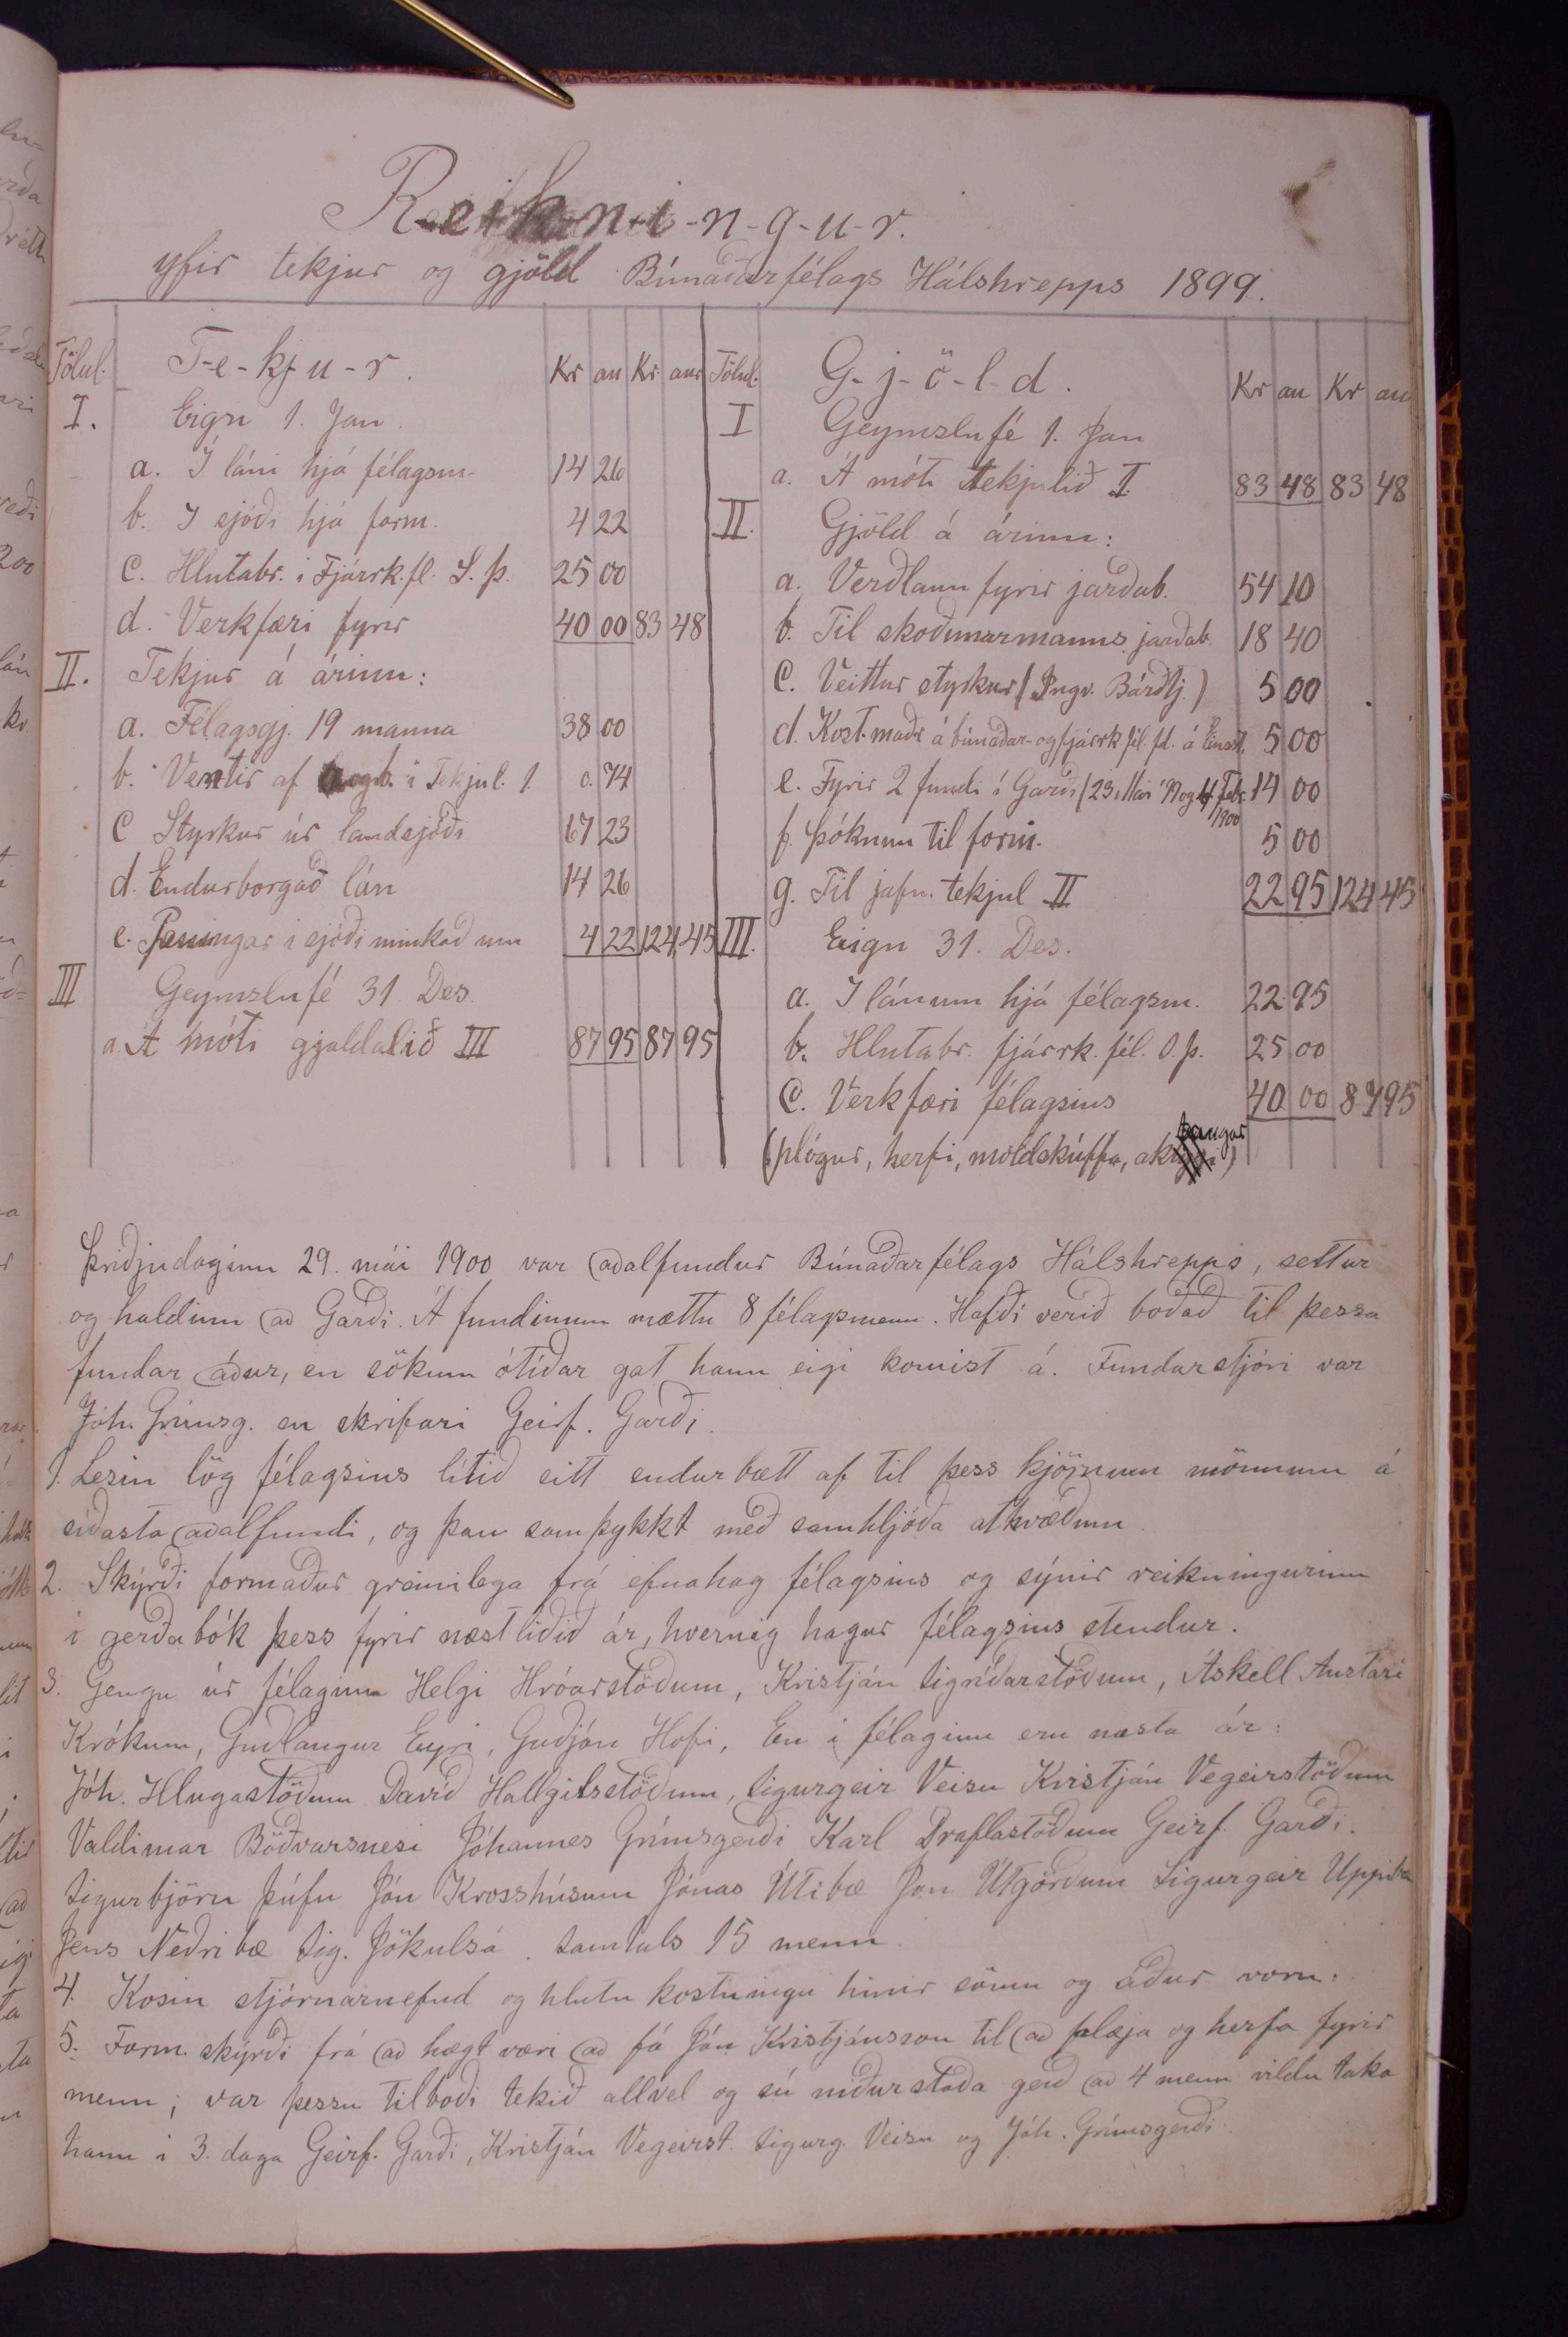 R-e-i-k-n-i-n-g-u-r.
yfir tekjur og gjöld Búnaðarfélags Hálshrepps 1899.
Tölul. T-e-kj-u-r. Kr au Kr aur
I. Eign 1. Jan.
a. Í láni hjá félagsm. 14 26
b. Í sjóði hjá form. 4 22
C. Hlutabr. í Fjárrk.fl. S. Þ. 25 00
d. Verkfæri fyrir 40 00 83 48
II. Tekjur á árinu:
a. Félagsgj. 19 manna 38 00
b. Ventir af í Tekjul. 1 0. 74
C Styrkur úr landsjóði 67 23
d. Endurborgað lán 14 26
e. Peningar í sjóði minkað um 4 22 124,45
III Geymslufé 31. Des.
a. Á móti gjaldalið III 87 95 87 95
Tölul. G-j-ö-l-d. Kr au Kr au
I Geymslufé 1. Jan
a. Á móti tekjulið I. 83 48 83 48
II. Gjöld á árinu:
a. Verðlaun fyrir jarðab. 54 10
b. Til skoðunarmanns jarðab. 18 40
C. Veittur styrkur (Ingv. Bárðtj.) 5 00
d. Kost. maðr á búnaðar- og fjárrk fél. fd. á 5 00
e. Fyrir 2 fundi í Garði (23. Mai '99 og 4. Febr. 1900 14 00
f. Þóknun til form. 5 00
g. Til jafn. tekjul II 22 95 124 45
III. Eign 31. Des.
a. Í lánum hjá félagsm. 22 95
b. Hlutabr. fjárrk. fél. S. Þ. 25 00
C. Verkfæri félagsins 40 00 87 95
(plógur, herfi, moldskúffa, aktaugar)
Þriðjudaginn 29. mái 1900 var aðalfundur Búnaðarfélags Hálshrepps, settur
og haldinn að Garði. Á fundinum mættu 8 félagsmenn. Hafði verið boðað til þessa
fundar áður, en sökum ótíðar gat hann eigi komist á. Fundarstjóri var
Jóh. Grímsg. en skrifari Geirf. Garði.
1. Lesin lög félagsins lítið eitt endurbætt af til þess kjörnum mönnum á
síðasta aðalfundi, og þau samþykkt með samhljóða atkvæðum.
2. Skýrði formaður greinilega frá efnahag félagsins og sýnir reikningurinn
í gerðabók þess fyrir næstliðið ár, hvernig hagur félagsins stendur.
3. Gengu úr félaginu Helgi Hróarstöðum, Kristján Sigríðarstöðum, Áskell Austari
Krókum, Guðlaugur Eyri, Guðjón Hofi, En í félaginu eru næsta ár:
Jóh. Illugastöðum Davíð Hallgilsstöðum, Sigurgeir Veisu Kristján Vegeirstöðum
Valdimar Böðvarsnesi Jóhannes Grímsgerði Karl Draflastöðum Geirf. Garði.
Sigurbjörn Þúfu Jón Krosshúsum Jónas Útibæ Jon Útgörðum Sigurgeir Uppibæ
Jens Neðribæ Sig. Jökulsá. Samtals 15 menn.
4. Kosin stjórnarnefnd og hlutu kostningu hinir sömu og áður voru:
5. Form. skýrði frá að hægt væri að fá Jón Kristjánsson til að plæja og herfa fyrir
menn; var þessu tilboði tekið allvel og sú niðurstaða gerð að 4 menn vildu taka
hann í 3. daga Geirf. Garði, Kristján Vegeirst. Sigurg. Veisu og Jóh. Grímsgerði.